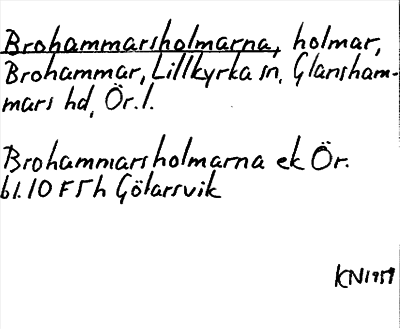 Brohammarsholmarna, holmar,
Brohammar, Lillkyrka sn, Glansham-
mars hd, Ör. l.
Brohammarsholmarna ek Ör.
bl. 10 F 5 h Götarsvik
KN 1959